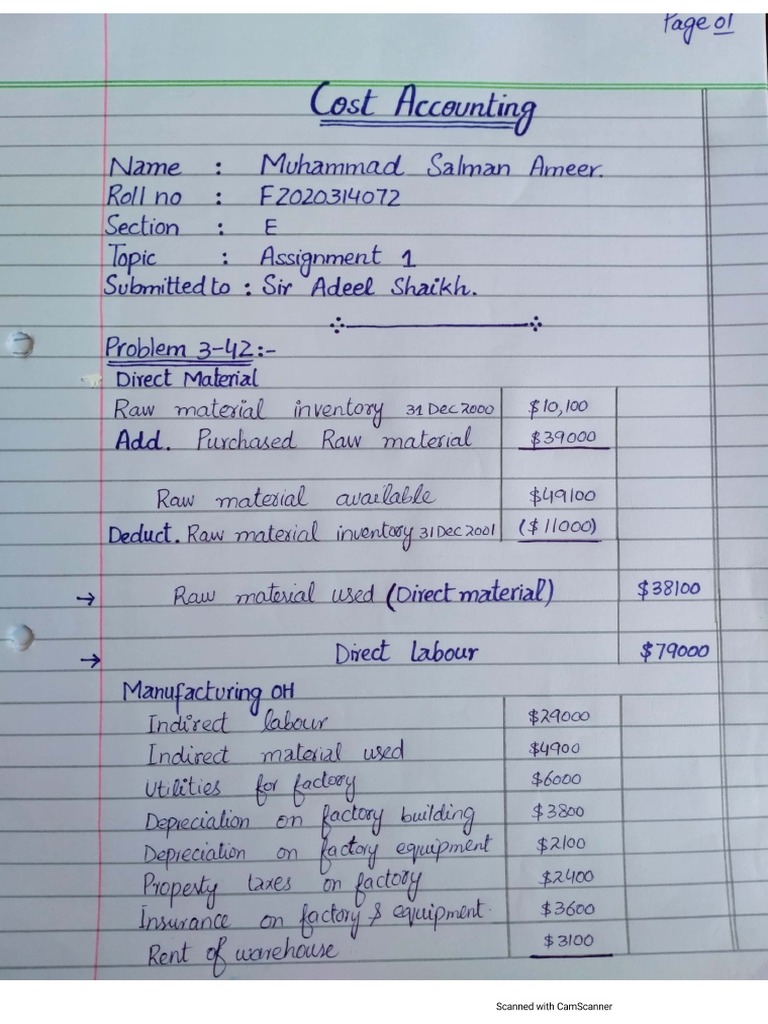 Page 01
Cost Accounting
Name : Muhammad Salman Ameer.
Roll no : F2020314072
Section : E
Topic : Assignment 1
Submitted to : Sir Adeel Shaikh.
Problem 3-42:-
Direct Material
Raw material inventory 31 Dec 2000 $10,100
Add. Purchased Raw material $39000
Raw material available $49100
Deduct. Raw material inventory 31 Dec 2001 ($11000)
→ Raw material used (Direct material) $38100
→ Direct labour $79000
Manufacturing OH
Indirect labour $29000
Indirect material used $4900
Utilities for factory $6000
Depreciation on factory building $3800
Depreciation on factory equipment $2100
Property taxes on factory $2400
Insurance on factory & equipment. $3600
Rent of warehouse $3100
Scanned with CamScanner